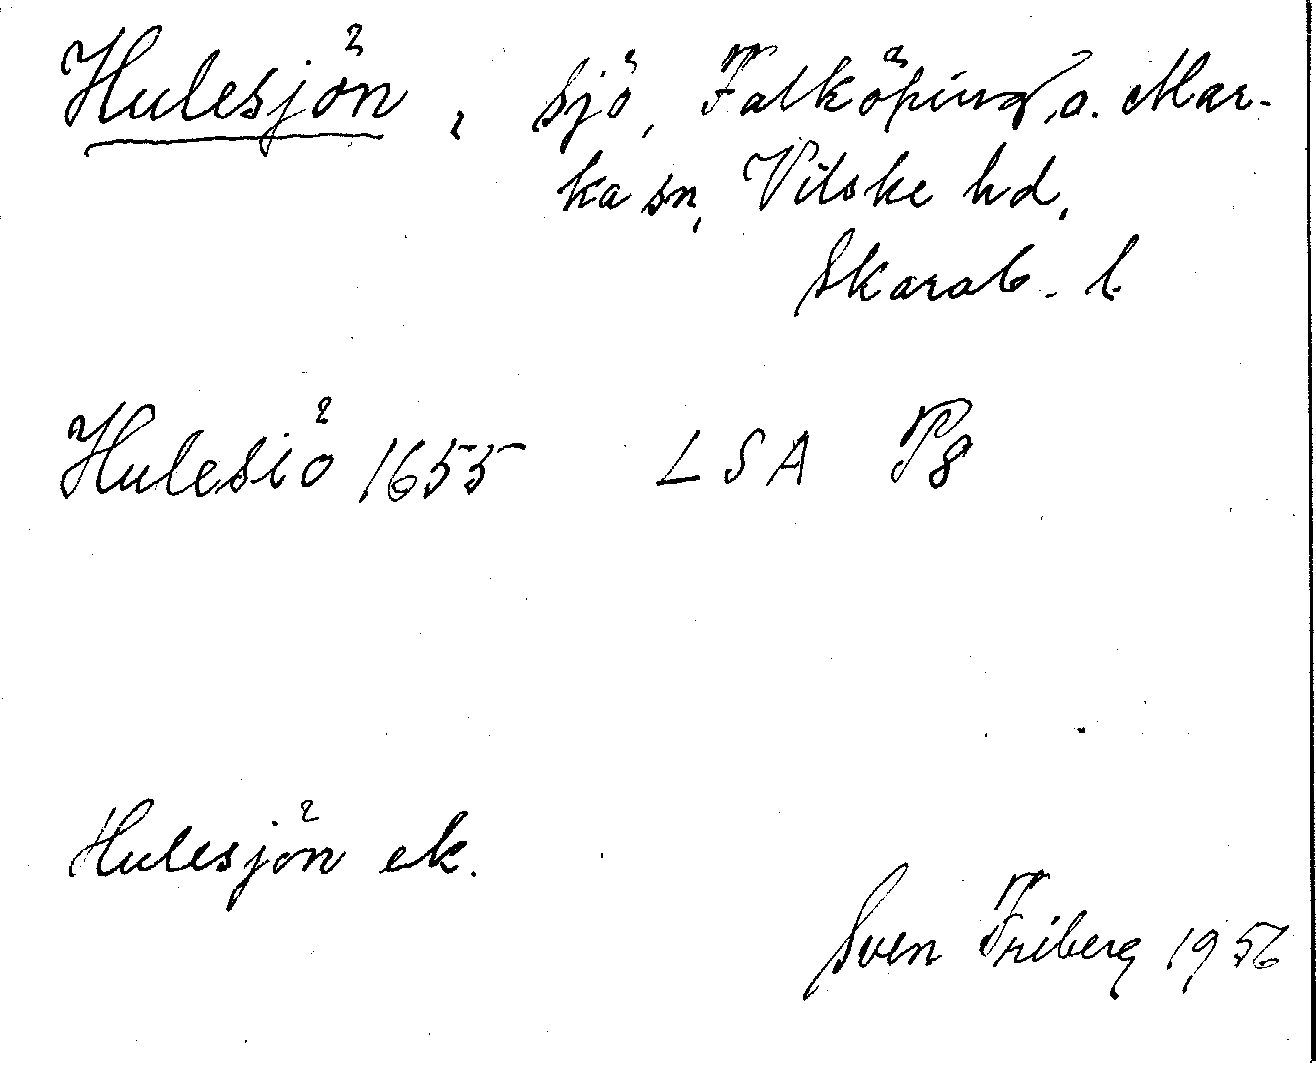 Hulesjön, sjö, Falköping o. Mar-
ka sn, Vilske hd,
Skarab. l.
Hulesiö 1655 LSA P8
Hulesjön ek.
Sven Friberg 1956